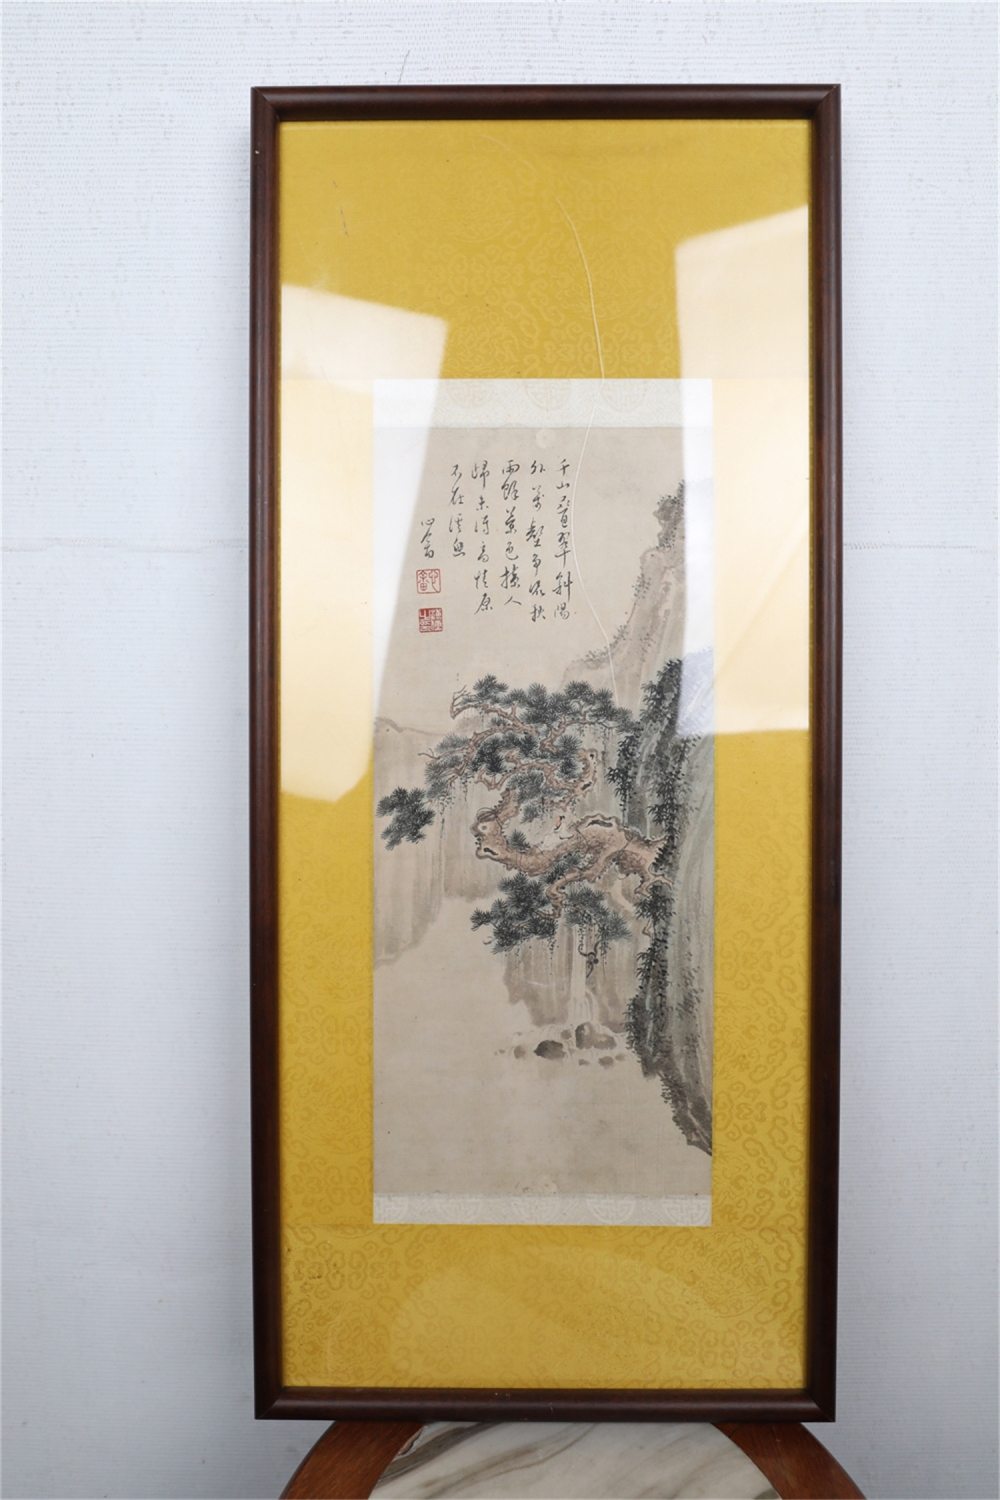 千山叠翠斜陽
外萬壑爭流秋
雨餘葉色撩人
歸未得高情原
不在溪魚
心畬